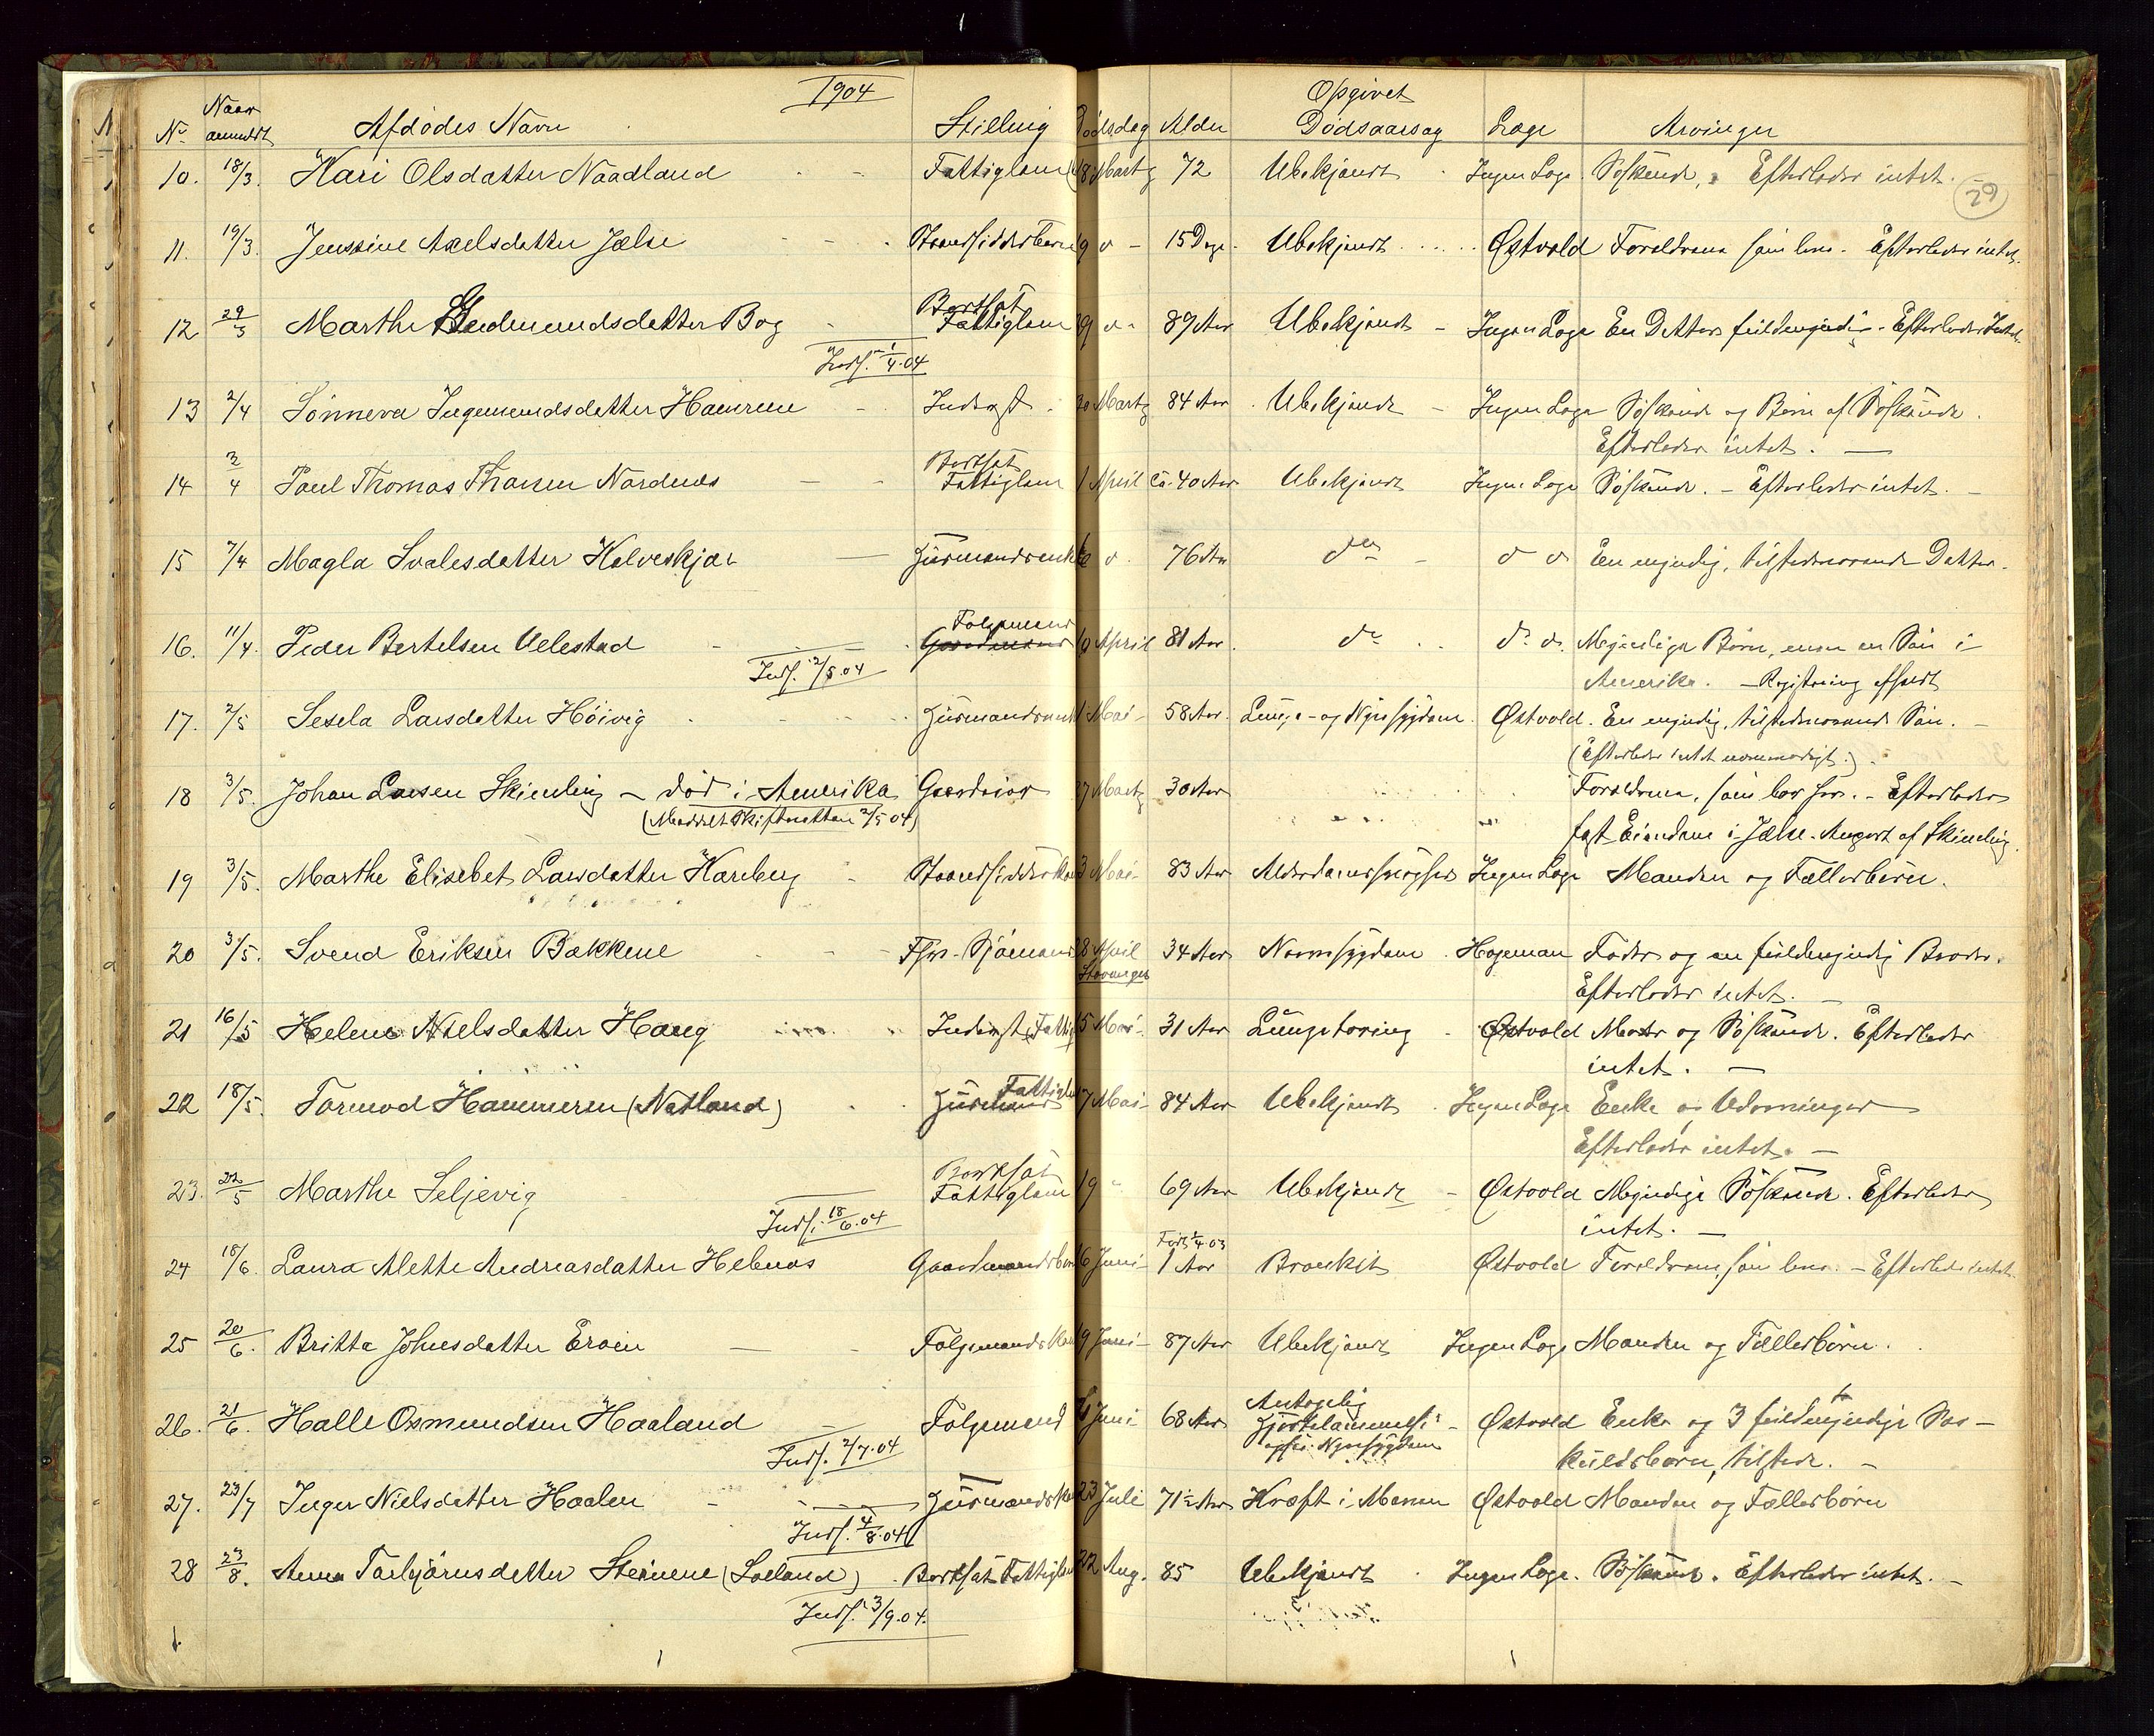 1904
Opgivet
No Naar anmeldt Afdødes Navn Stilling Dødsdag Alder Dødsaarsag Læge Arvinger
29
10. 18/3. Kari Olsdatter Naadland Fattiglem 18 Marts 72 Ubekjendt Ingen Læge Søskende, Efterlader intet.
11. 19/3. Jenssine Axelsdatter Jelse Strandsidderbarn 19 d 15 Dage Ubekjendt Østvold Forældrene som leve. Efterlader intet.
Bortsat
12 29/3 Marthe Gudmundsdatter Bog Fattiglem 29 d 87 Aar Ubekjendt Ingen Læge En Datter fuldmyndig. Efterlader Intet.
Inds. 1/4.04
13 2/4 Sønneva Ingemundsdatter Hamrene Inderst 30 Marts 84 Aar Ubekjendt Ingen Læge Søskende og Børn af Søskende.
Efterlader intet.
Bortsat
14 2/4 Paul Thomas Thorsen Nordnæs Fattiglem 1 April ca. 40 Aar Ubekjendt Ingen Læge Søskende. Efterlader intet.
15 7/4 Magla Svalesdatter Kalveskjær Husmandsenke 6 d. 76 Aar do d d En myndig, tilstedeværende Datter.
Følgemand
16. 11/4. Peder Bertelsen Velestad Gaardmand 10 April 81 Aar do d. d. Myndige Børn, men en Søn i
Inds. 2/5.04
Amerika. Registrering afholdt
17. 2/5 Sesela Larsdatter Høivig Husmandsenke 1 Mai 58 Aar. Lunge- og Nyresygdom. Østvold. En myndig, tilstedeværende Søn.
(Efterlader intet nævneværdigt.)
18 3/5. Johan Larsen Skimling død i Amerika Gaardeier 27 Marts 30 Aar Forældrene, som bor her. Efterlader
(Meddelt Skifteretten 2/5 04)
fast Eiendom i Jelse. Anpart af Skimling.
19 3/5. Marthe Elisebet Larsdatter Harberg Strandsidderkone 3 Mai 83 Aar Alderdomssvaghed Ingen Læge Manden og Fællesbørn.
20 3/5. Svend Eriksen Bakkene Fhv. Sjømand 28 April 34 Aar Nervesygdom Hageman Fader og en fuldmyndig Broder.
Stavanger
Efterlader intet.
21 16/5 Helene Nielsdatter Haug Inderst (Fattig 15 Mai 31 Aar Lungetæring Østvold Moder og Søskende. Efterlader
intet.
Fattiglem
22 18/5. Tormod Hammeren (Natland) Husmand 17 Mai 84 Aar Ubekjendt Ingen Læge Enke og Udarvinger
Efterlader intet.
Bortsat
23. 22/5 Marthe Seljevig Fattiglem 19 69 Aar Ubekjendt Østvold Myndige Søskende. Efterlader
Inds. 18/6.04
intet.
Født 2/4 03
24 18/6. Laura Alette Andreasdatter Helenæs Gaardmandsbarn 16 Juni 1 Aar Bronkit Østvold Forældrene, som leve. Efterlader intet.
25 20/6. Britta Johnsdatter Eroen Følgemandskone 19 Juni 87 Aar Ubekjendt Ingen Læge Manden og Fællesbørn.
Antagelig
26. 21/6. Halle Osmundsen Haaland Følgemand Juni 68 Aar Hjertelammelse Østvold Enke og 3 fuldmyndige Sær-
Inds. 2/7.04
Nyresygdom
kuldsbørn, tilstede.
27. 23/7 Inger Nielsdatter Haalen Husmandskone 23 Juli 71½ Aar Kræft i Maven Østvold Manden og Fællesbørn
Inds. 4/8.04
28 23/8. Anna Torbjørnsdatter Steinene (Loeland) Bortsat Fattiglem 22 Aug. 85 Ubekjendt Ingen Læge. Søskende. Efterlader intet.
Inds. 3/9.04.